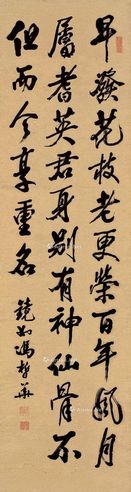 早發花枝老更榮百年風月
屬耆英君身別有神仙骨不
但而今享重名
馮哲華